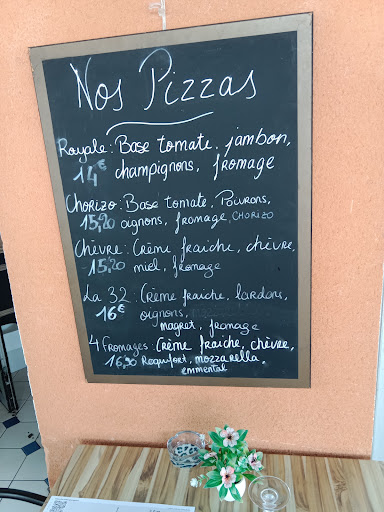 Nos Pizzas
Royale : Base tomate, jambon,
14€ champignons, fromage
Chorizo : Base tomate, Poivrons,
15,20 oignons, fromage, CHORIZO
Chèvre : Crème fraîche, chèvre,
15,20 miel, fromage
La 32 : Crème fraîche, lardons,
16€ oignons,
magret, fromage
4 Fromages : Crème fraîche, chèvre,
16,90 Roquefort, mozzarella,
emmental